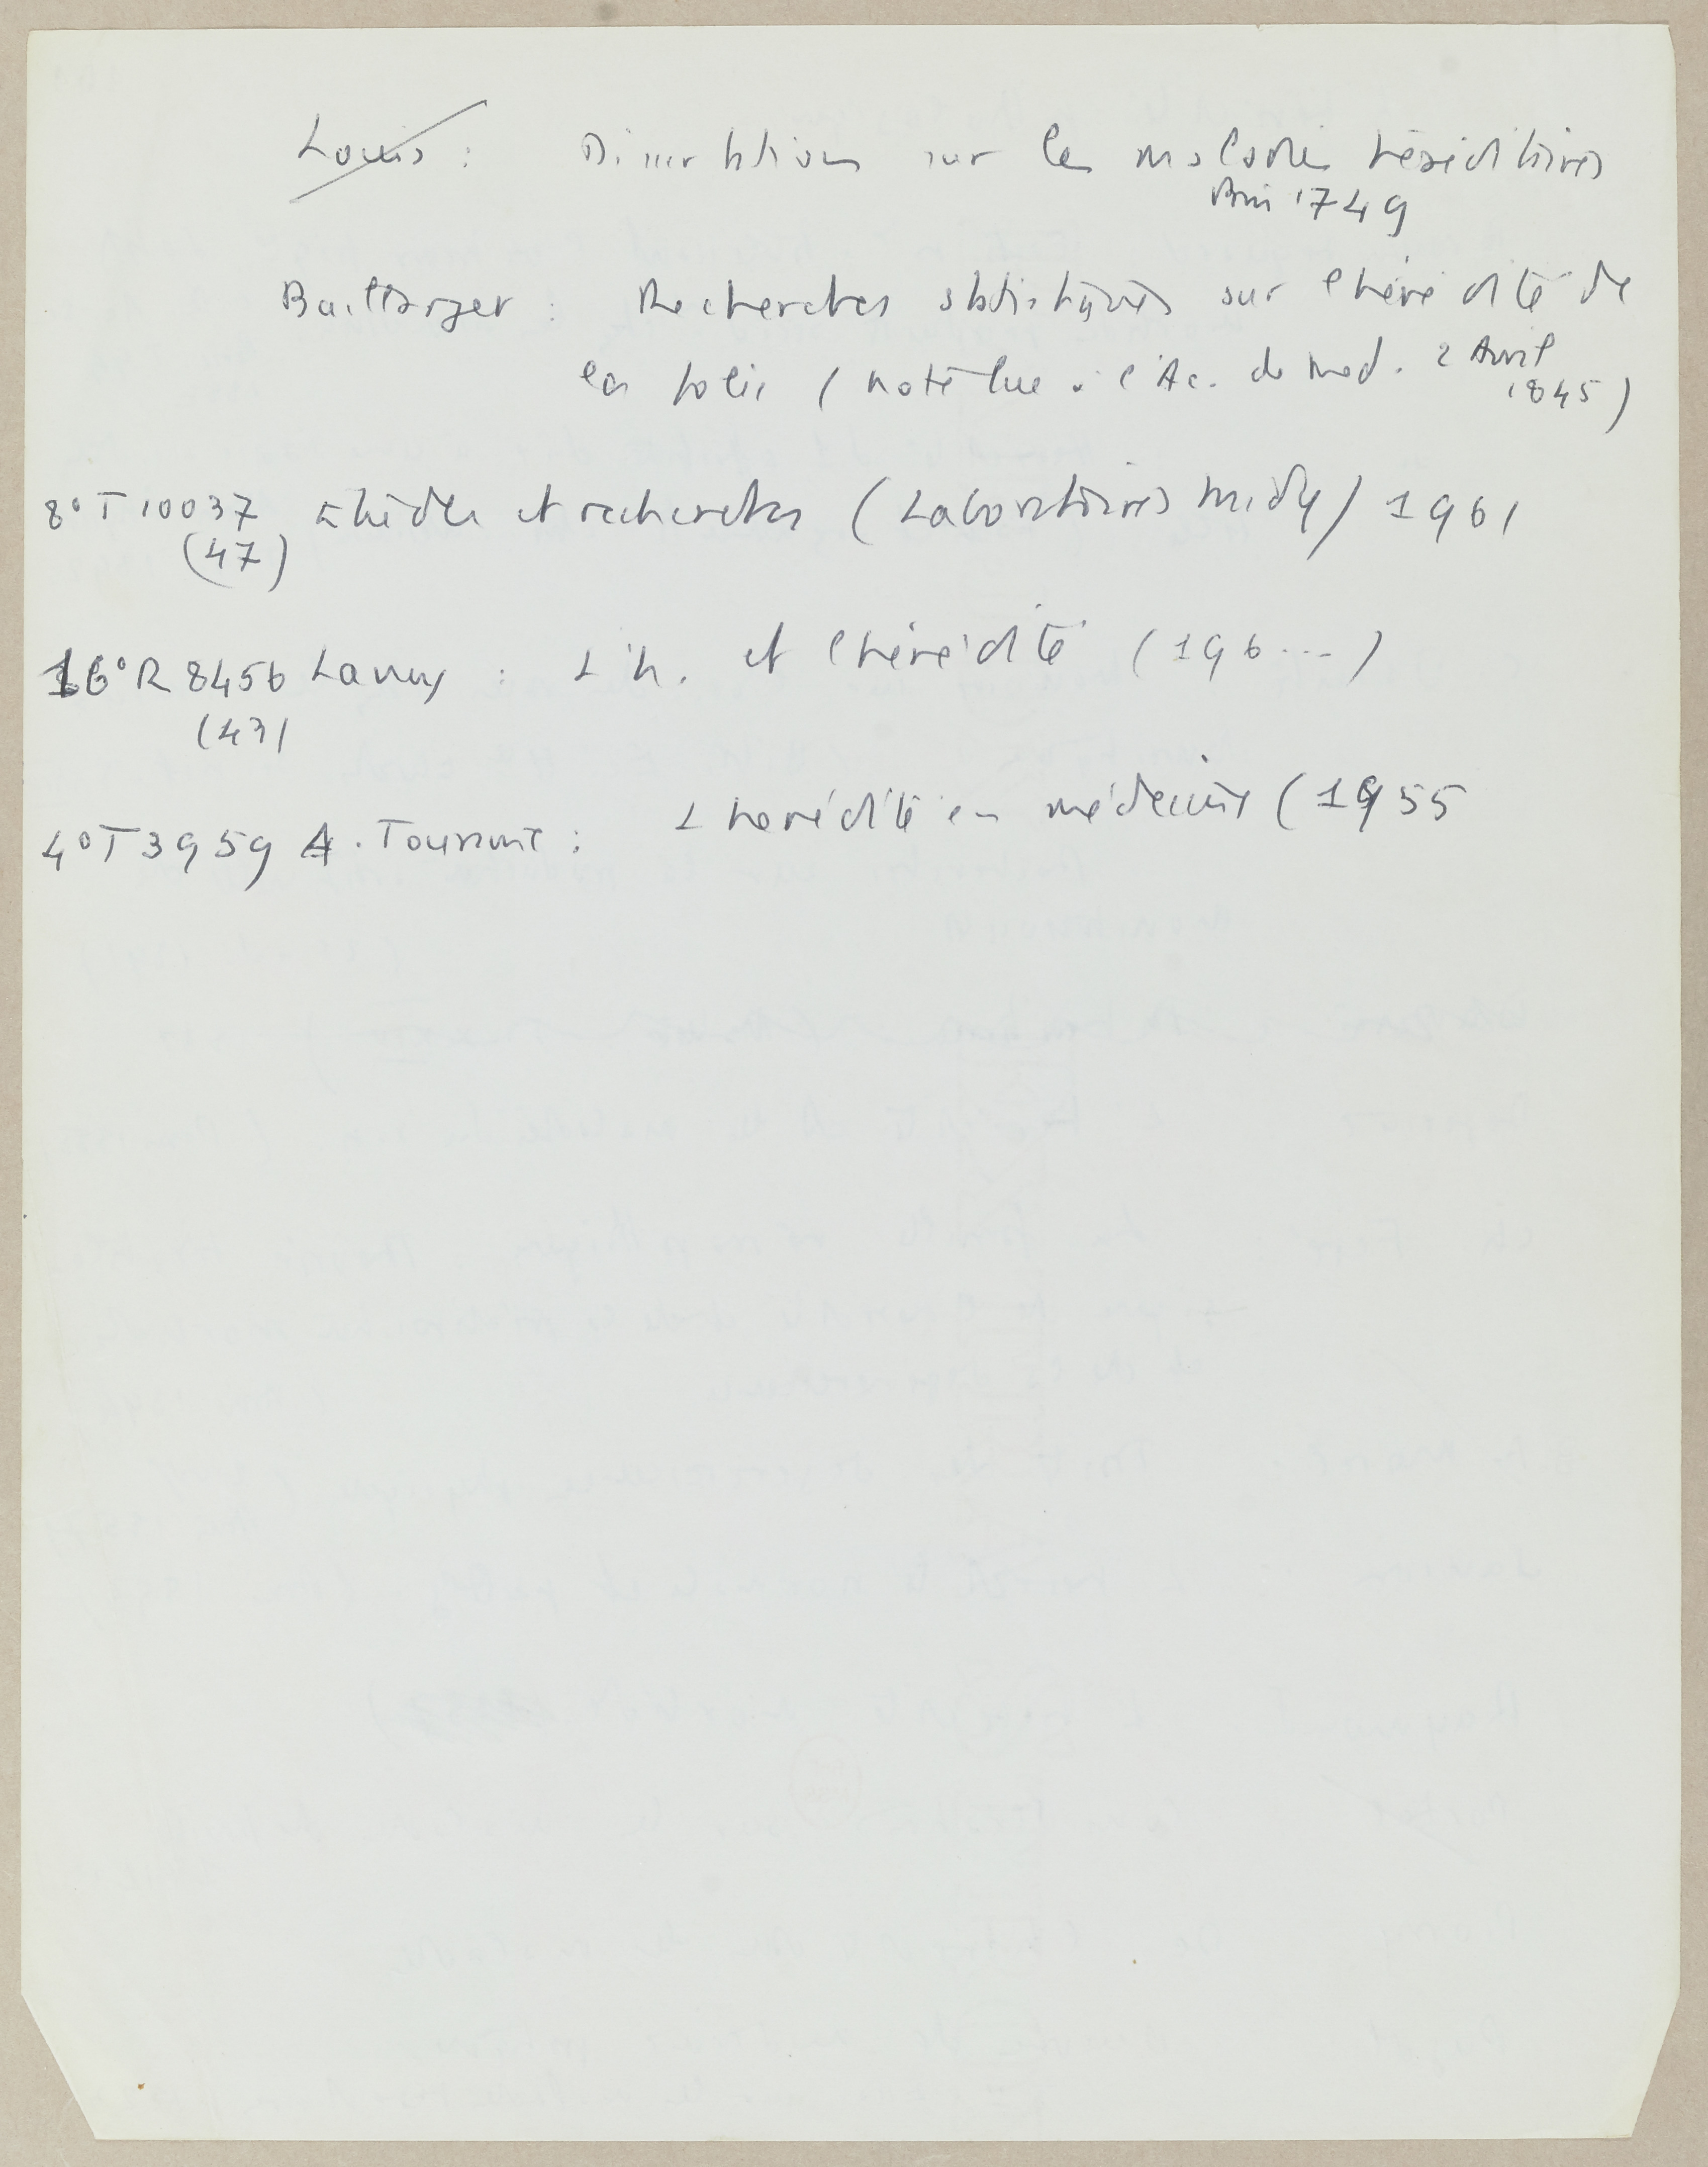 Louis : Dissertations sur les maladies héréditaires
Paris 1749
Baillarger : Recherches statistiques sur l'hérédité de
la folie (note lue à l'Ac. de med. 2 Avril
1845)
8° T 10037 Etudes et recherches (Laboratoires Midy) 1961
(47)
16° R 8456 Lamy : L'h. et l'hérédité (196...)
(43)
4° T 3959 A. Touraine : L'hérédité en médecine (1955